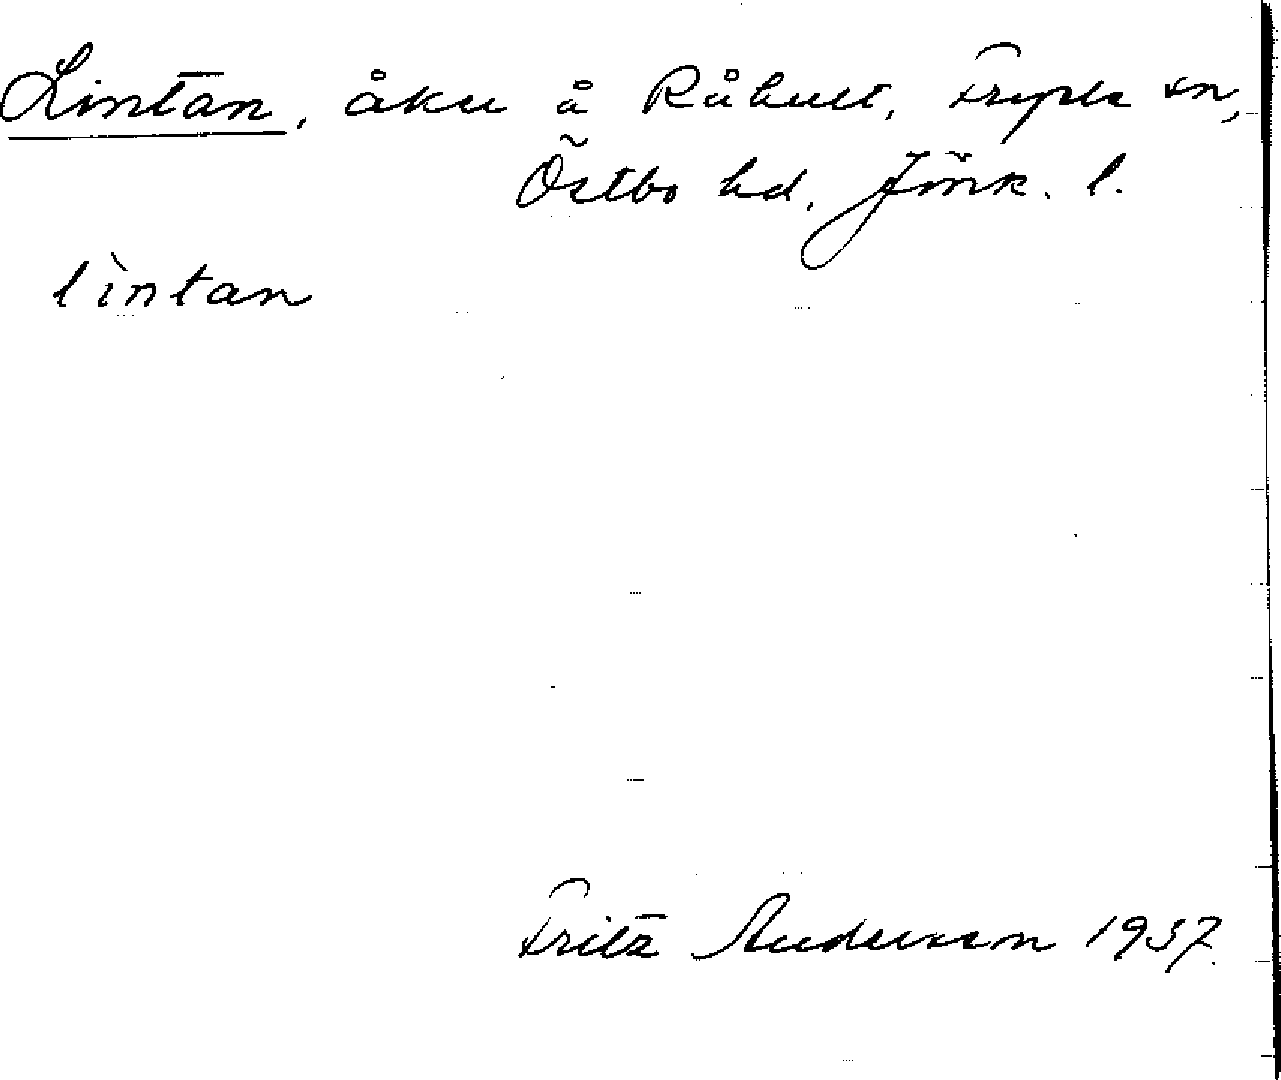 Lintan, åker å Råhult, Fryele sn,
Östbo hd, Jönk. l.
lintan
Fritz Andersson 1937